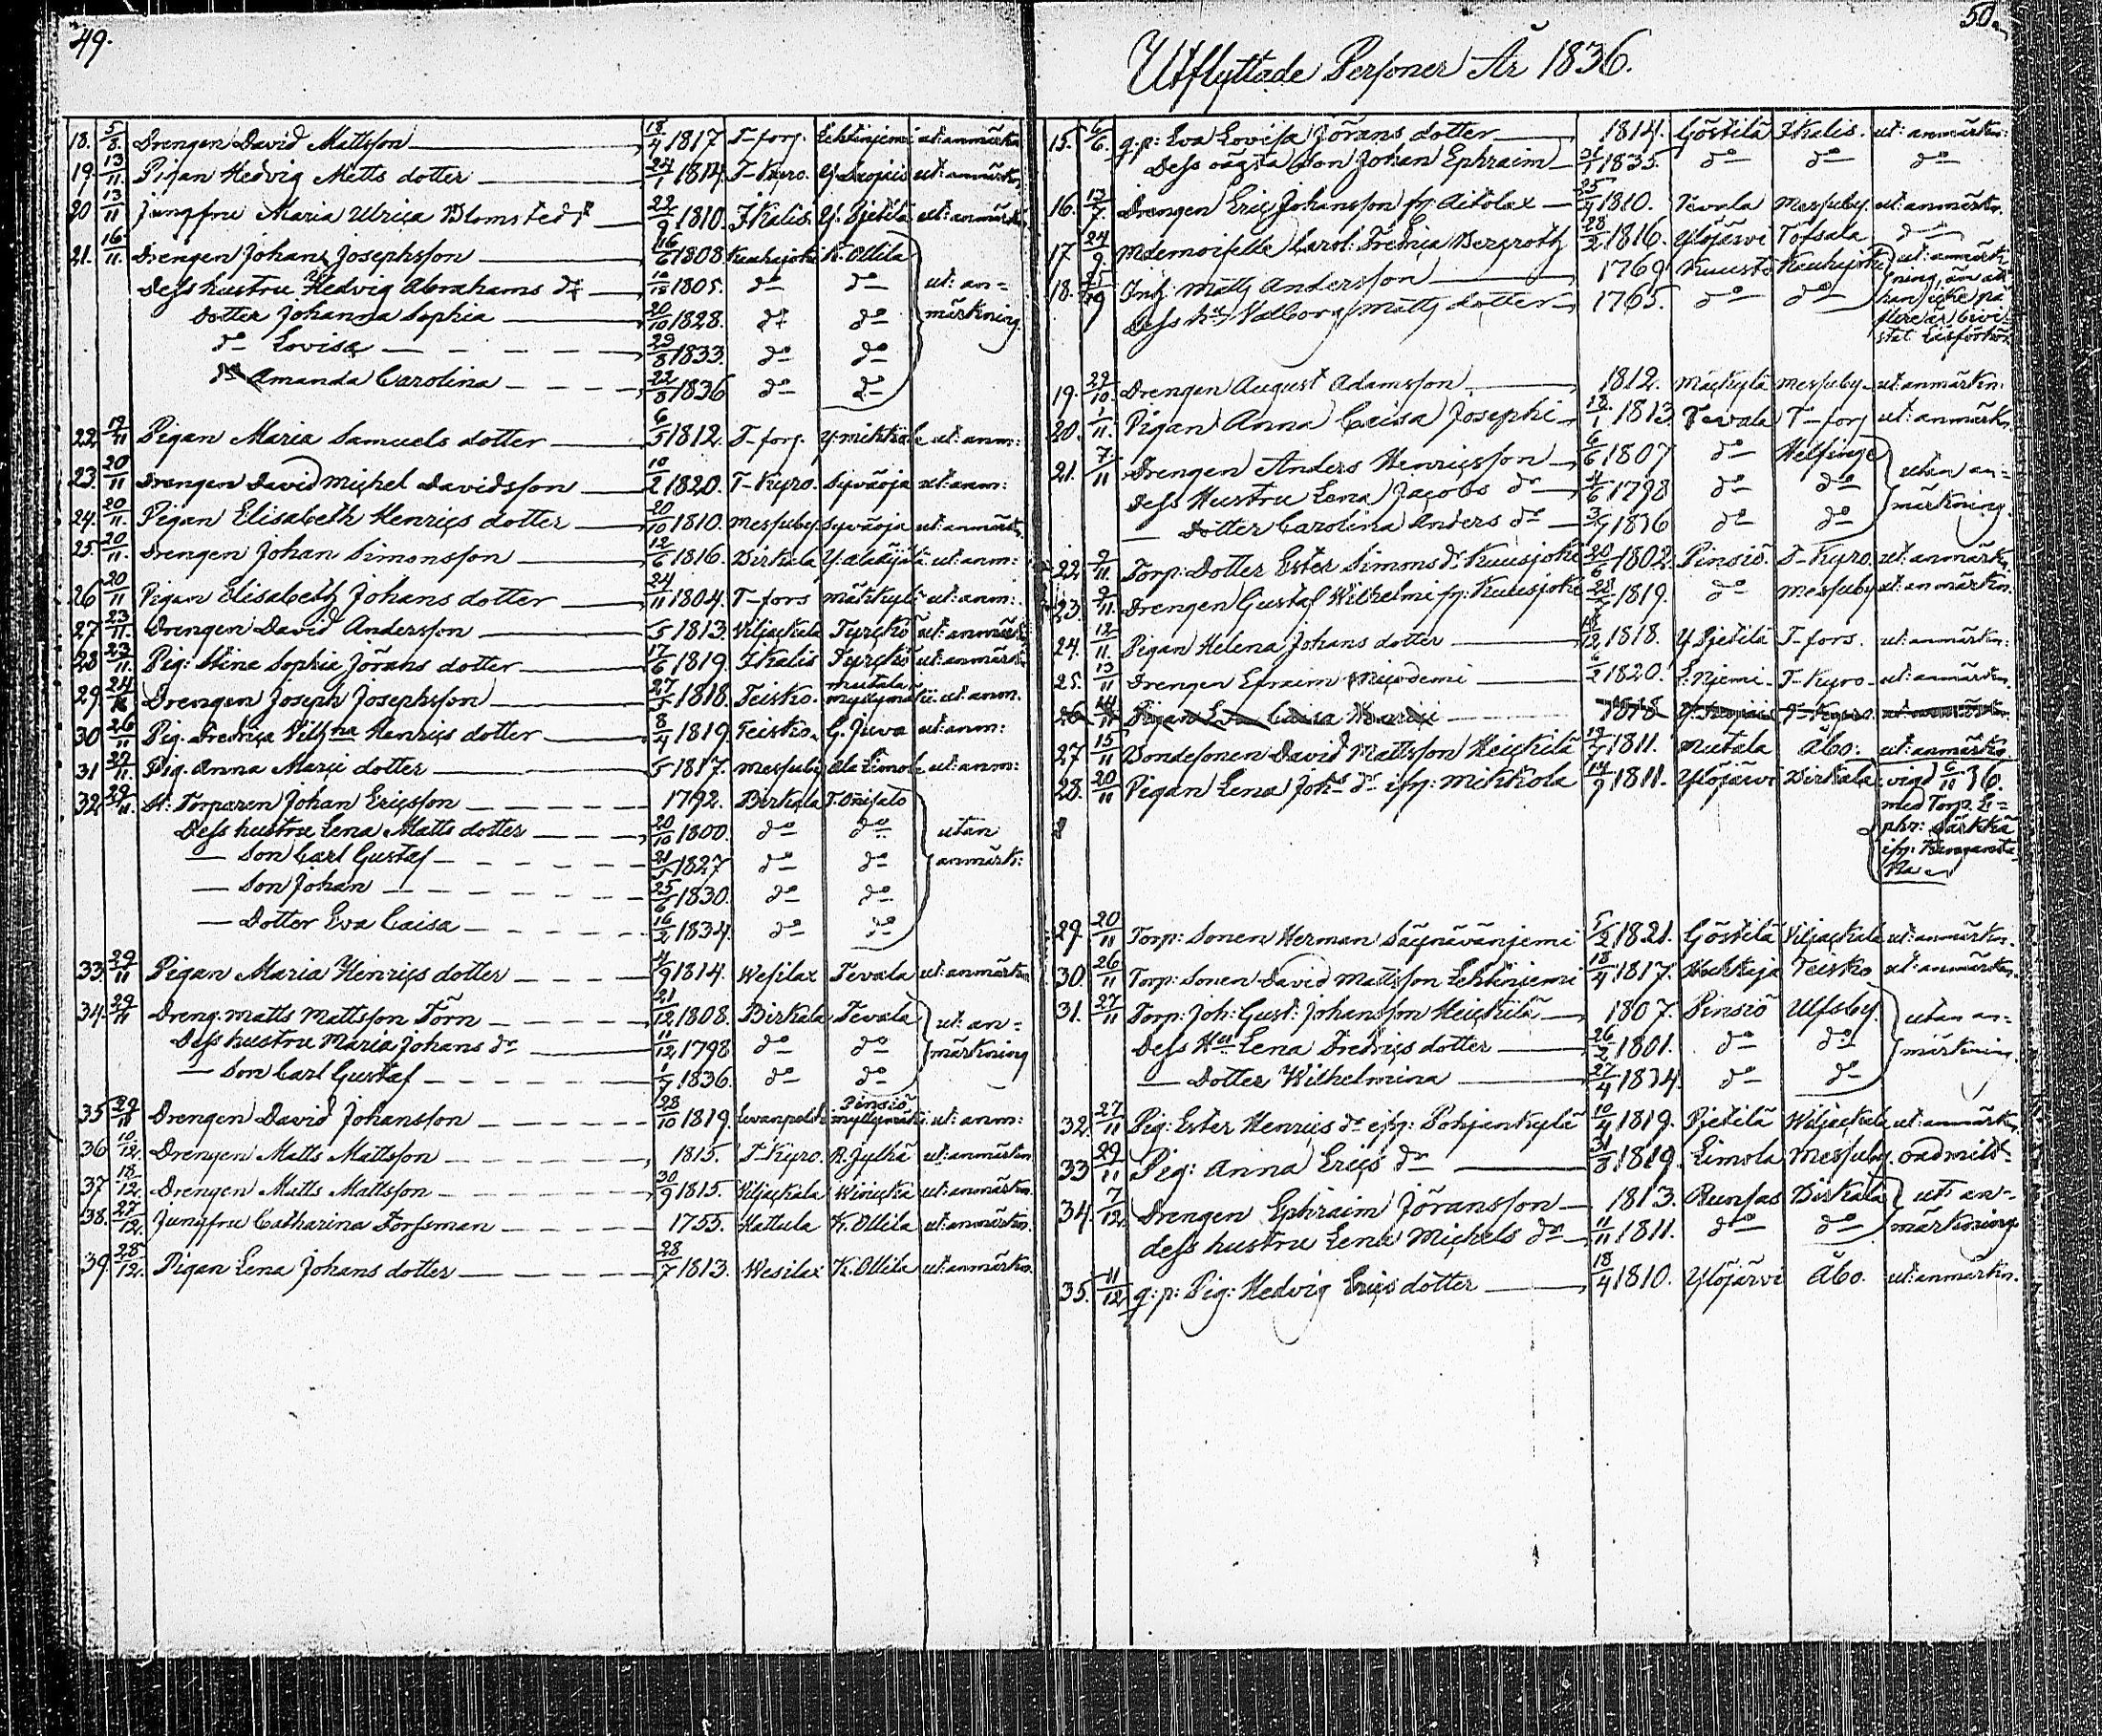 49.
18. 5/8. Drengen David Mattsson 18/4 1817 T-fors. Lehtinjemi ut: anmärkn
19. 13/11. Pigan Hedvig Matts dotter 24/1 1814. T-Kyro. ut: anmärkn.
20 13/11 Jungfru Maria Ulrica Blomstedt 22/9 1810. Ikalis. Y. Pjetilä ut: anmärkn
21. 16/11. Drengen Johan Josephsson 16/6 1808 Kauhajoki K. Ollila
Dess hustru Hedvig Abrahams dr 1805. do do ut: an=
Dotter Johanna Sophia 20/10 1828. do do märkning
do Lovisa 29/8 1833. do do
do Amanda Carolina 22/8 1836 do do
22. 19/11 Pigan Maria Samuels dotter 6/5 1812. T-fors. Y. Mikkola ut: anm:
23. 20/11 Drengen David Michel Davidsson 10/2 1820. T-Kyro. Syväoja ut: anm:
24. 20/11. Pigan Elisabeth Henrics dotter 20/10 1810. Messuby. Syväoja ut: anmärkn
25. 20/11. Drengen Johan Simonsson 12/6 1816. Birkala ut: anm:
26 20/11 Pigan Elisabeth Johans dotter 24/11 1804. T-fors mäkkylä ut: anm:
27 23/11. Drengen David Andersson /5 1813. Viljackala Tyrckö ut: anmärkn
28 23/11. Pig: Stina Sophia Jörans dotter 17/6 1819. Ikalis Tyrckö ut: anmärkn
29 24/11 Drengen Joseph Josephsson 27/5 1818. Teisko. mutala myllymäki ut: anm.
30 26/11 Pig. Fredrica Vilhna Henrics dotter 8/4 1819. Teisko. G. Juva ut: anm:
31 29/11. Pig. Anna Maria dotter /5 1817. Messuby Ala Limola ut: anm:
32 29/11. Torparen Johan Ericsson 1792. Birkala
Dess hustru Lena Matts dotter 20/10 1800. do do utan
— Son Carl Gustaf 21/5 1827 do do anmärk:
— Son Johan 25/6 1830. do do
— Dotter Eva Caisa 16/2 1834. do do
33. 29/11 Pigan Maria Henrics dotter 4/9 1814. Wesilax Tevala ut: anmärkn
34. 29/11 Dreng. Matts Mattsson Törn 21/12 1808. Birkala Tevala ut: an=
Dess hustru Maria Johans dr 11/12 1798 do do märkning
— Son Carl Gustaf 1/7 1836. do do
35 29/11 Drengen David Johansson 28/10 1819. Pinsiö myllymäki ut: anm:
36 10/12. Drengen Matts Mattsson 1815. T-Kyro. R. Jylhä ut: anmärkn
37 18/12. Drengen Matts Mattsson 30/9 1815. Viljackala ut: anmärkn.
38. 27/12. Jungfru Catharina Forssman 1755. Hattula K. Ollila ut: anmärkn.
39. 28/12. Pigan Lena Johans dotter 28/7 1813. Wesilax K. Ollila ut: anmärkn.
50.
Utflyttade Personer År 1836.
15. 6/6. q.p: Eva Lovisa Jörans dotter 1814. Göstilä Ikalis. ut: anmärkn:
Dess oägta Son Johan Ephraim 1835. do do do
16. 13/7. Drengen Eric Johansson fr: Aitolax 25/4 1810. Tevala Messuby. ut: anmärkn.
17 24/9 Mdemoiselle Carol: Fredrica Bergroth 28/2 1816. Ylöjärvi Töfsala do
18. Inh: Matts Andersson 1769 Kuusto Kauhajoki ut: anmärk
Dess hu Valborg Matts dotter 1765. do do ning, än att
han icke på
flere år bevi=
stat Läsförhör
19. 29/10. Drengen August Adamsson 1812. Mäckylä Messuby. ut: anmärkn:
20. 1/11. Pigan Anna Caisa Josephi 18/1 1813 Tevala T-fors ut: anmärkn.
21. 7/11 Drengen Anders Henricsson 6/6 1807 do Helsinge utan an=
Dess Hustru Lena Jacobs dr 4/6 1798 do do märkning.
— Dotter Carolina Anders dr 1836 do do
22. 9/11. Torp: Dotter Ester Simons dr Kuusjoki 20/6 1802. Pinsiö. T-Kyro. ut: anmärkn.
23. 9/11. Drengen Gustaf Wilhelmi fr: Kuusjoki 1819. do Messuby ut: anmärkn.
24. 12/11. Pigan Helena Johans dotter 18/12 1818. Y Pjetilä T-fors. ut: anmärkn:
25. 13/11 Drengen Efraim Nicodemi 6/2 1820. L:njemi. T-Kyro. ut: anmärkn.
26 14/11 Pigan Eva Caisa 1818 T-Kyro. ut: anmärkn.
27 15/11 Bondesonen David Mattsson Heickilä 19/7 1811. Mutala Åbo. ut: anmärkn.
28. 20/11 Pigan Lena Johs dr ifr: Mikkola 14/9 1811. Ylöjärvi Birkala vigd 6/11 36.
med Torp. E=
phr: Särkkä
ifr:
29. 20/11 Torp: Sonen Herman Säynäväniemi 5/2 1821. Göstilä Viljackala ut: anmärkn.
30. 26/11 Torp: Sonen David Mattsson Lehtinjemi 18/4 1817. Teisko ut: anmärkn.
31. 27/11 Torp: Joh: Gust: Johansson Heickilä 1807. Pinsiö Ulfsby. utan an=
Dess Hu Lena Fredrics dotter 26/2 1801. do do märkning.
— Dotter Wilhelmina 27/4 1834. do do
32. 27/11 Pig: Ester Henrics dr ifr: Pohjankylä 10/4 1819. Pjetilä Wiljackala ut: anmärkn.
33 29/11 Pig: Anna Erics dr 31/8 1819. Limola Messuby.
34. 7/12 Drengen Ephraim Jöransson 1813. Runsas Birkala ut: an=
dess hustru Lena Michels dr 11/11 1811. do do märkning
35. 11/12 q: p: Pig: Hedvig Erics dotter 18/4 1810. Ylöjärvi Åbo. ut: anmärkn.